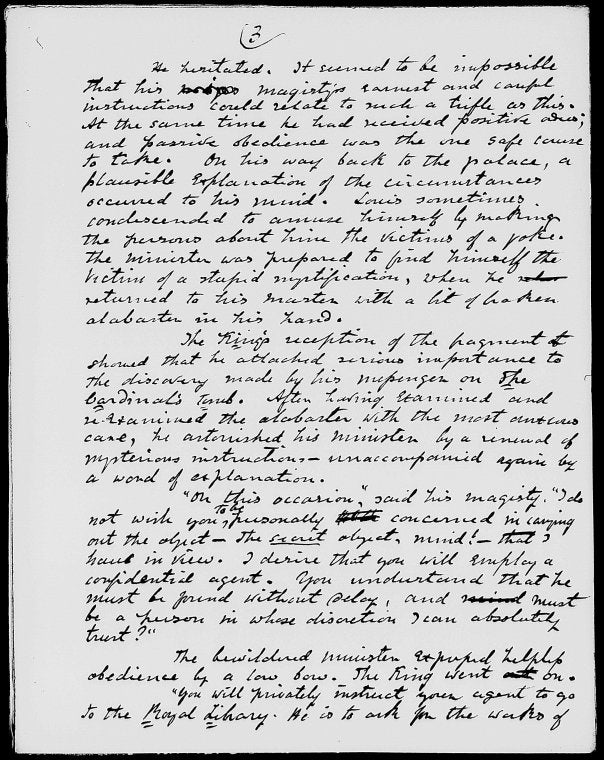 3
He hesitated. It seemed to be impossible
that his majesty's earnest and careful
instructions could relate to such a trifle as this.
At the same time he had received positive orders;
and passive obedience was the one safe course
to take. On his way back to the palace, a
plausible explanation of the circumstances
occurred to his mind. Louis sometimes
condescended to amuse himself by making
the persons about him the victims of a joke.
The minister was prepared to find himself the
victim of a stupid mystification, when he
returned to his master with a bit of broken
alabaster in his hand.
The King's reception of the fragment
showed that he attached serious importance to
the discovery made by his messenger on The
Cardinal's Tomb. After having examined and
re-examined the alabaster with the most anxious
care, he astonished his minister by a renewal of
mysterious instructions - unaccompanied again by
a word of explanation.
"On this occasion," said his majesty. "I do
not wish you to be personally concerned in carrying
out the object - the secret object, mind! - that I
have in view. I desire that you will employ a
confidential agent. You understand that he
must be found without delay, and must
be a person in whose discretion I can absolutely
trust?"
The bewildered minister expressed helpless
obedience by a low bow. The King went on.
"You will privately instruct your agent to go
to the Royal Library. He is to ask for the works of